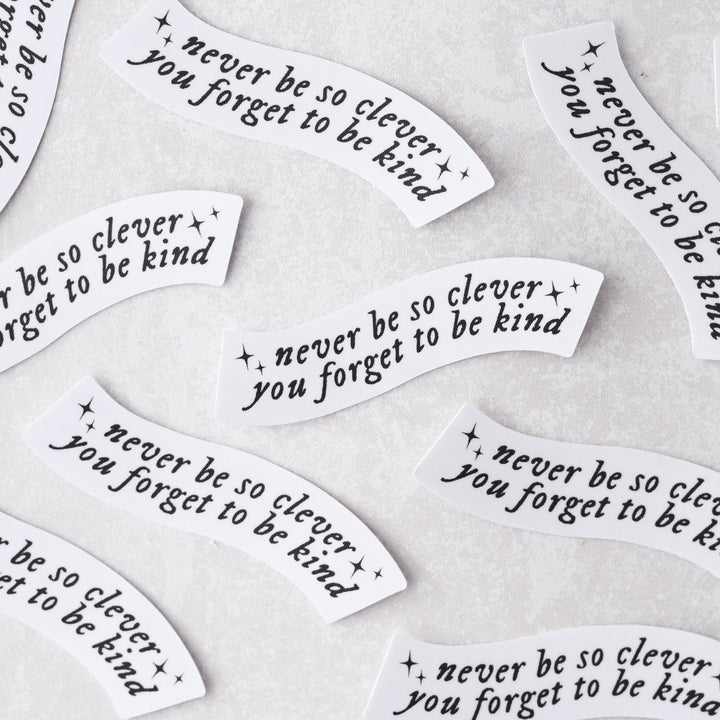 er be so cl
forget
never be so clever
you forget to be kind
never be so
you forget to be kind
be so clever
to be kind
never be so clever
you forget to be kind
never be so clever
you forget to be kind
never be so
you forget to be
be so clever
to be kind
never be so clever
you forget to be kind